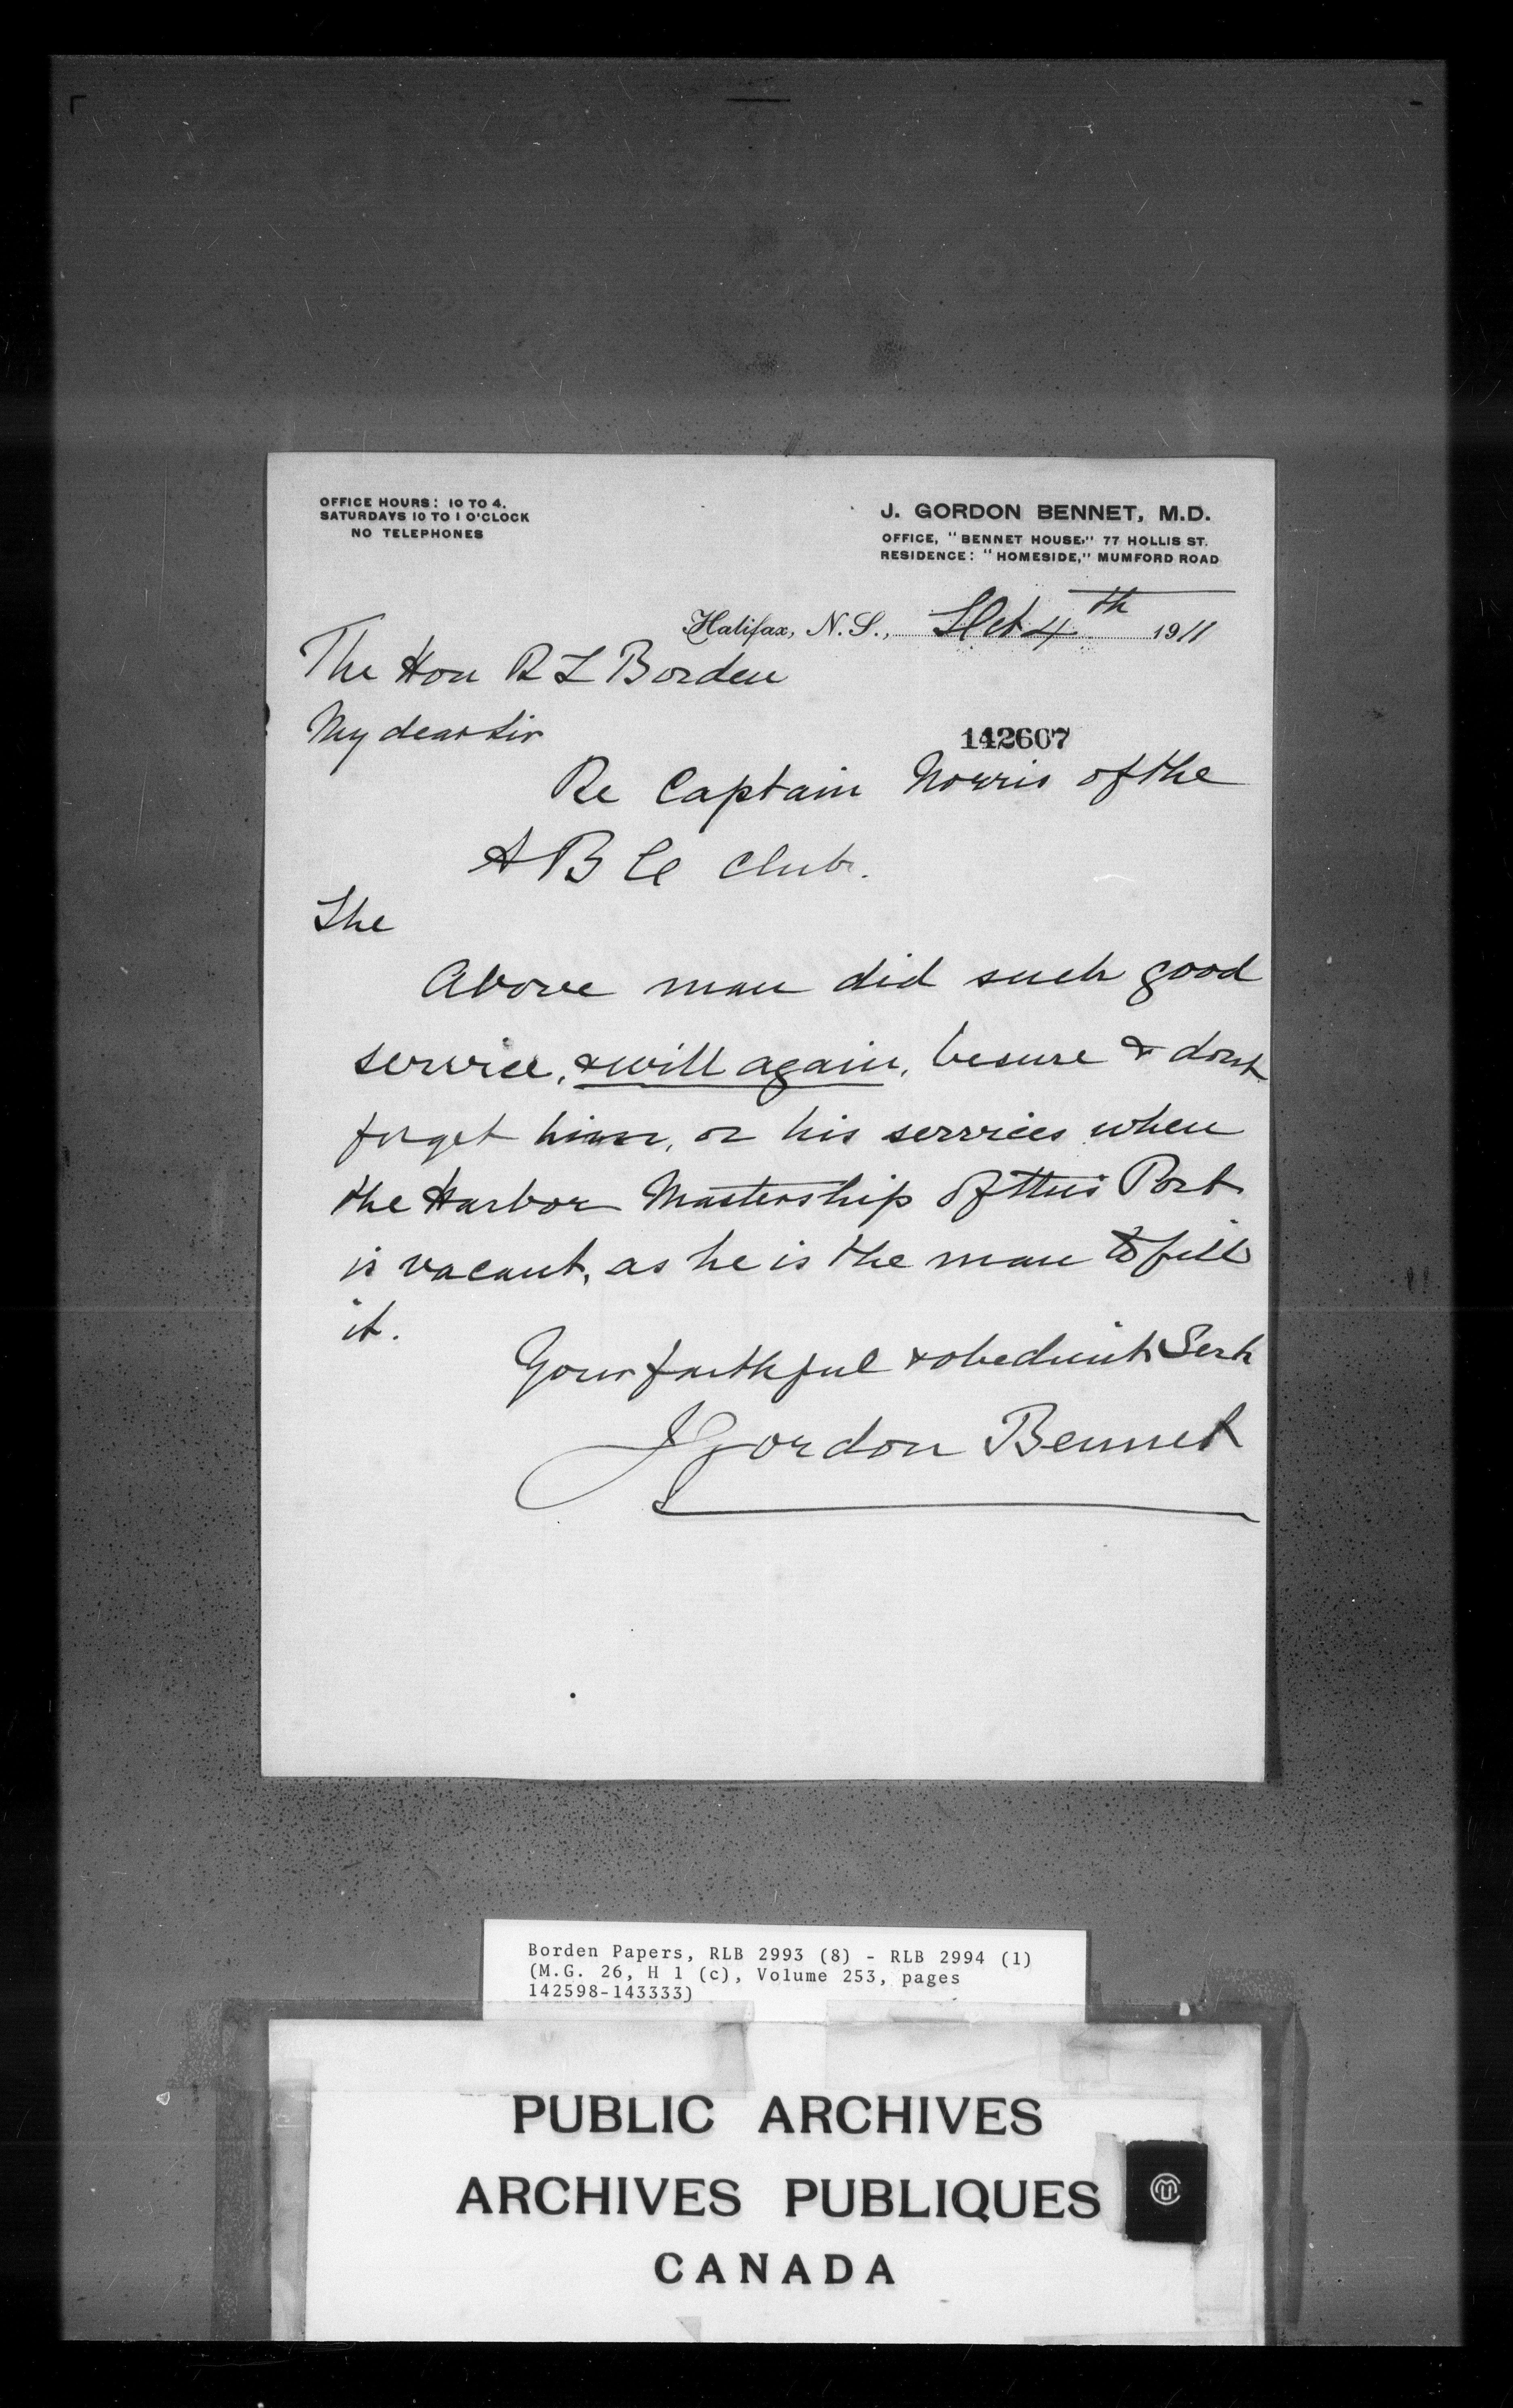 OFFICE HOURS: 10 TO 4.
SATURDAYS 10 TO 1 O'CLOCK
NO TELEPHONES
J. GORDON BENNET, M.D.
OFFICE, "BENNET HOUSE," 77 HOLLIS ST.
RESIDENCE: "HOMESIDE," MUMFORD ROAD
Halifax, N.S., Oct 4th 1911
The Hon R L Borden
My dear Sir
142607
Re Captain Norris of the
A B C Club.
The
Above man did such good
service, & will again, besure & dont
forget him, or his services when
the Harbor Mastership of this Port
is vacant, as he is the man to fill
it.
Your faithful & obedient Sert
J Gordon Bennet
Borden Papers, RLB 2993 (8) - RLB 2994 (1)
(M.G. 26, H 1 (c), Volume 253, pages
142598-143333)
PUBLIC ARCHIVES
ARCHIVES PUBLIQUES
CANADA